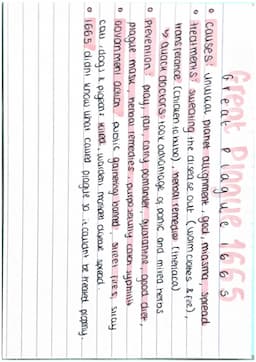 Great Plague 1665
• causes: unusual planet alignment, god, miasma, spread
• treatments: sweating the disease out (warm clothes & fire),
transference (chicken is hung), herbal remedies (theriaca)
↳ quack doctors: took advantage of panic and mixed herbs
• Prevention: pray, fast, carry pomander, quarantine, good diet,
plague mask, herbal remedies, purposefully catch syphilis
• Government action: public gathering banned, street fires, stray
cats, dogs & pigeons killed, watchmen
• 1665 didnt know what caused plague so it couldnt be treated properly.